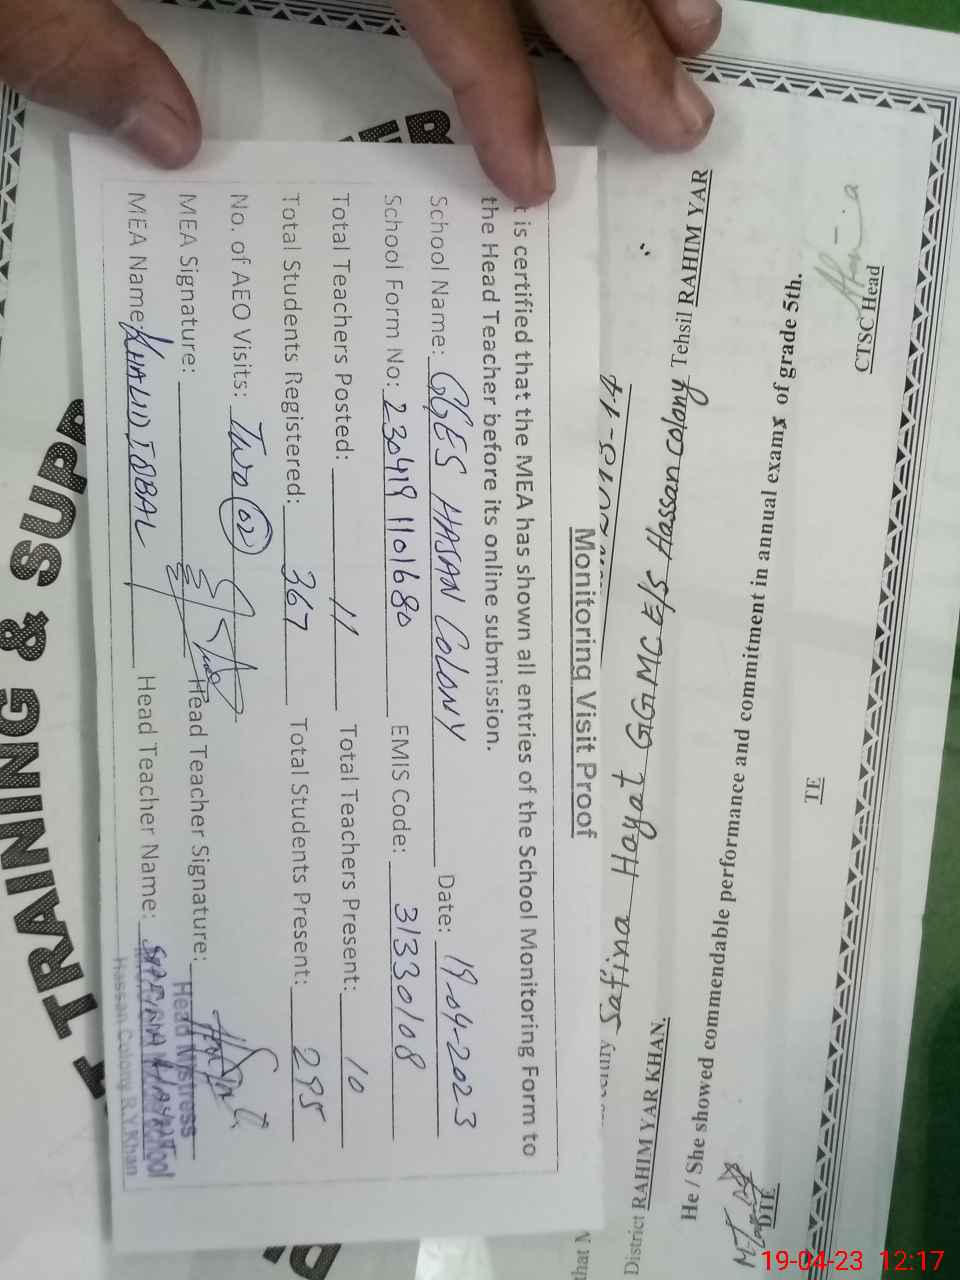 Monitoring Visit Proof
t is certified that the MEA has shown all entries of the School Monitoring Form to
the Head Teacher before its online submission.
School Name: GGES HASAN COLONY Date: 19-04-2023
School Form No: 230419 1101680 EMIS Code: 31330108
Total Teachers Posted: 11 Total Teachers Present: 10
Total Students Registered: 367 Total Students Present: 295
No. of AEO Visits: Two (02)
MEA Signature: Head Teacher Signature:
MEA Name: KHALID IQBAL Head Teacher Name:
Head Mistress
Hassan Colony R.Y.Khan
that M
Hayat GGMC P/S Hassan colony Tehsil RAHIM YAR
District RAHIM YAR KHAN.
He / She showed commendable performance and commitment in annual exams of grade 5th.
DTE TE CTSC Head
T TRAINING & SUPP
19-04-23 12:17